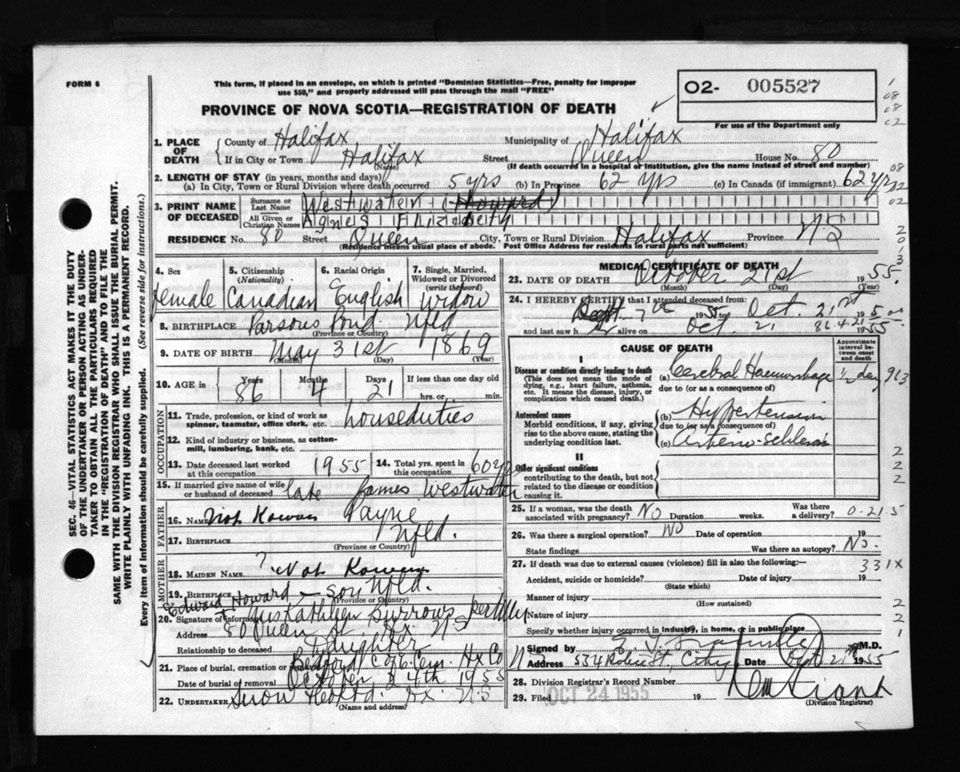 FORM 6
This form, if placed in an envelope, on which is printed "Dominion Statistics—Free, penalty for improper
use $50," and properly addressed will pass through the mail "FREE"
O2- 005527
For use of the Department only
PROVINCE OF NOVA SCOTIA—REGISTRATION OF DEATH
SEC. 46—VITAL STATISTICS ACT MAKES IT THE DUTY
OF THE UNDERTAKER OR PERSON ACTING AS UNDERTAKER
TO OBTAIN ALL THE PARTICULARS REQUIRED
IN THE "REGISTRATION OF DEATH" AND TO FILE THE
SAME WITH THE DIVISION REGISTRAR WHO SHALL ISSUE THE BURIAL PERMIT.
WRITE PLAINLY WITH UNFADING INK. THIS IS A PERMANENT RECORD.
Every item of information should be carefully supplied. (See reverse side for instructions.)
1. PLACE OF DEATH
County of Halifax Municipality of Halifax
If in City or Town Halifax (Name) Street Queen House No. 80
(If death occurred in a hospital or institution, give the name instead of street and number)
2. LENGTH OF STAY (in years, months and days)
(a) In City, Town or Rural Division where death occurred 5 yrs (b) In Province 62 yrs (c) In Canada (if immigrant) 62 yrs
3. PRINT NAME OF DECEASED
Surname or Last Name Westwater (Howard)
All Given or Christian Names Agnes Elizabeth
RESIDENCE No. 80 Street Queen City, Town or Rural Division Halifax Province NS
(Residence means usual place of abode. Post Office Address for residents in rural parts not sufficient)
4. Sex female
5. Citizenship (Nationality) Canadian
6. Racial Origin English
7. Single, Married, Widowed or Divorced (write the word) Widow
8. BIRTHPLACE Parsons Pond Nfld
(Province or Country)
9. DATE OF BIRTH May 31st 1869
(Month) (Day) (Year)
10. AGE in Years 86 Months 4 Days 21 If less than one day old hrs. or min.
OCCUPATION
11. Trade, profession, or kind of work as spinner, teamster, office clerk, etc. houseduties
12. Kind of industry or business, as cotton-mill, lumbering, bank, etc.
13. Date deceased last worked at this occupation 1955
14. Total yrs. spent in this occupation 60 yrs
15. If married give name of wife or husband of deceased late James Westwater
FATHER
16. Name Not Known Payne
17. BIRTHPLACE Nfld.
(Province or Country)
MOTHER
18. MAIDEN NAME ? Not Known
19. BIRTHPLACE Nfld.
(Province or Country)
Edward Howard - son
20. Signature of Informant Burrows
Address 80 Queen St. Hx. NS
Relationship to deceased Daughter
21. Place of burial, cremation or Cem. Hx Co
Date of burial or removal October 24th 1955
22. UNDERTAKER Snow Hx. NS
(Name and address)
MEDICAL CERTIFICATE OF DEATH
23. DATE OF DEATH October 21st 1955.
(Month) (Day)
24. I HEREBY CERTIFY that I attended deceased from
Sept. 7th 1955 to Oct. 21st 1955
and last saw h alive on Oct. 21 1955
86.4.21
CAUSE OF DEATH
Approximate interval between onset and death
I
Disease or condition directly leading to death
(This does not mean the mode of dying, e.g., heart failure, asthma, etc. It means the disease, injury, or complication which caused death.)
(a) Cerebral Haemorrhage ½ day 963
due to (or as a consequence of)
Antecedent causes
Morbid conditions, if any, giving rise to the above cause, stating the underlying condition last.
(b) Hypertension
due to (or as a consequence of)
(c) Arterio-sclerosis
II
Other significant conditions
contributing to the death, but not related to the disease or condition causing it.
25. If a woman, was the death associated with pregnancy? NO Duration weeks. Was there a delivery? 0-215
26. Was there a surgical operation? NO Date of operation
State findings Was there an autopsy? No.
27. If death was due to external causes (violence) fill in also the following:—
331X
Accident, suicide or homicide? Date of injury 19
(State which)
Manner of injury
(How sustained)
Nature of injury
Specify whether injury occurred in industry, in home, or in public place
Signed by M.D.
Address City Date Oct 21 1955
28. Division Registrar's Record Number
29. Filed OCT 24 1955 19
(Division Registrar)